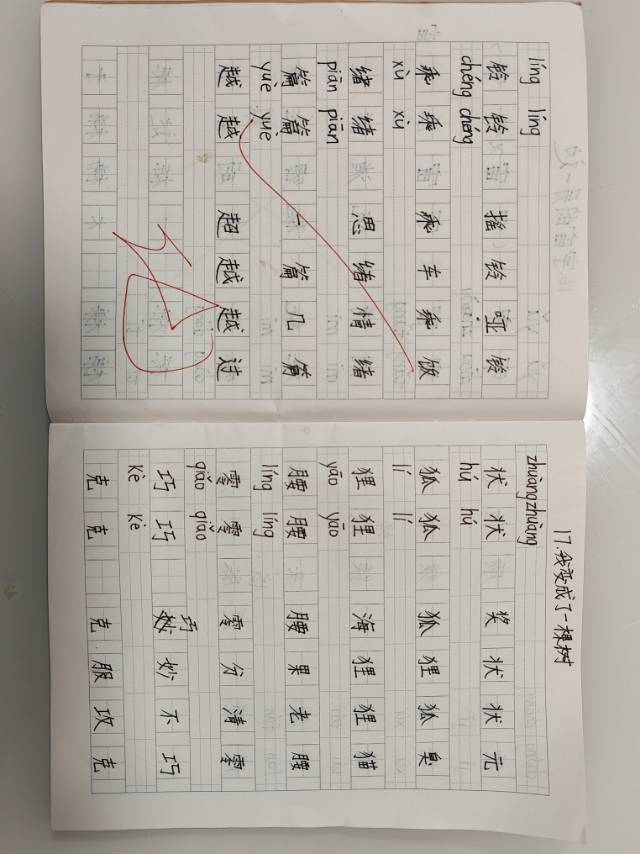 líng líng
铃铃 摇铃哑铃
chéng chéng
乘乘 乘车乘版
xù xù
绪绪 思绪情绪
piān piān
篇篇 一篇几篇
yuè yuè
越越 超越越过
17.我变成了一棵树
zhuàng zhuàng
状状 奖状状元
hú hú
狐狐 狐狸狐臭
lí lí
狸狸 海狸狸猫
yāo yāo
腰腰 腰果老腰
líng líng
零零 零分清零
qiǎo qiǎo
巧巧 巧妙不巧
kè kè
克克 克服攻克